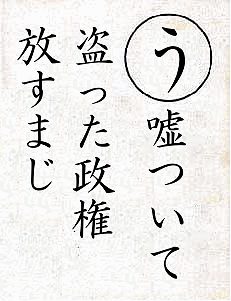 う
嘘ついて
盗った政権
放すまじ